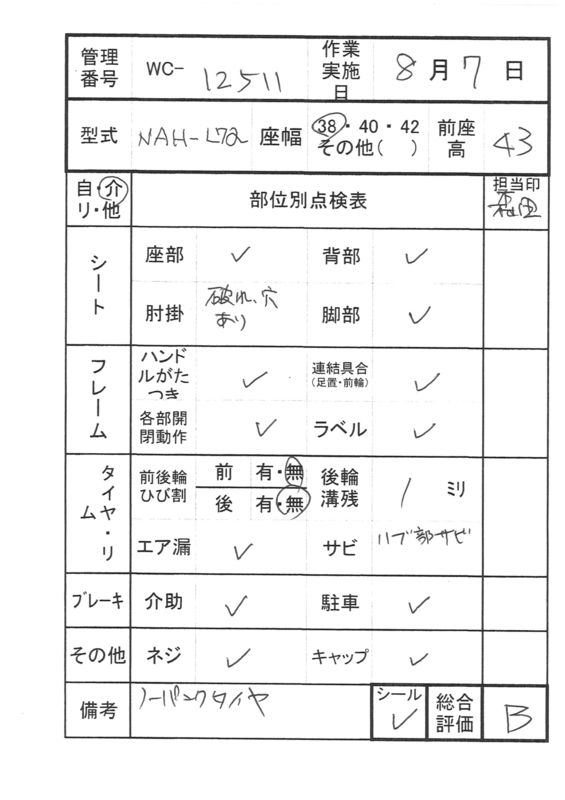 管理番号 WC- 12511 作業実施日 8月7日
型式 NAH-L7a 座幅 38・40・42 その他( ) 前座高 43
自・介 リ・他 部位別点検表 担当印
シート 座部 ✓ 背部 ✓
肘掛 破れ、穴あり 脚部 ✓
フレーム ハンドルがたつき ✓ 連結具合(足置・前輪) ✓
各部開閉動作 ✓ ラベル ✓
タイヤ・リム 前後輪ひび割 前 有・無 後輪溝残 1 ミリ
後 有・無
エア漏 ✓ サビ ハブ部サビ
ブレーキ 介助 ✓ 駐車 ✓
その他 ネジ ✓ キャップ ✓
備考 ノーパンクタイヤ シール ✓ 総合評価 B